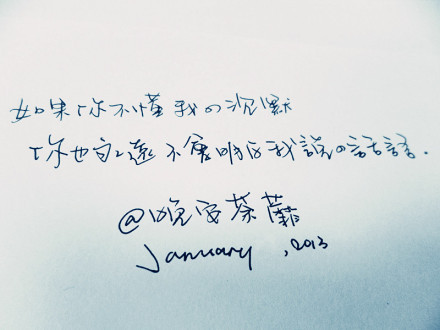 如果你不懂我の沉默
你也永遠不會明白我說の話語.
@晚安荼蘼
January, 2013